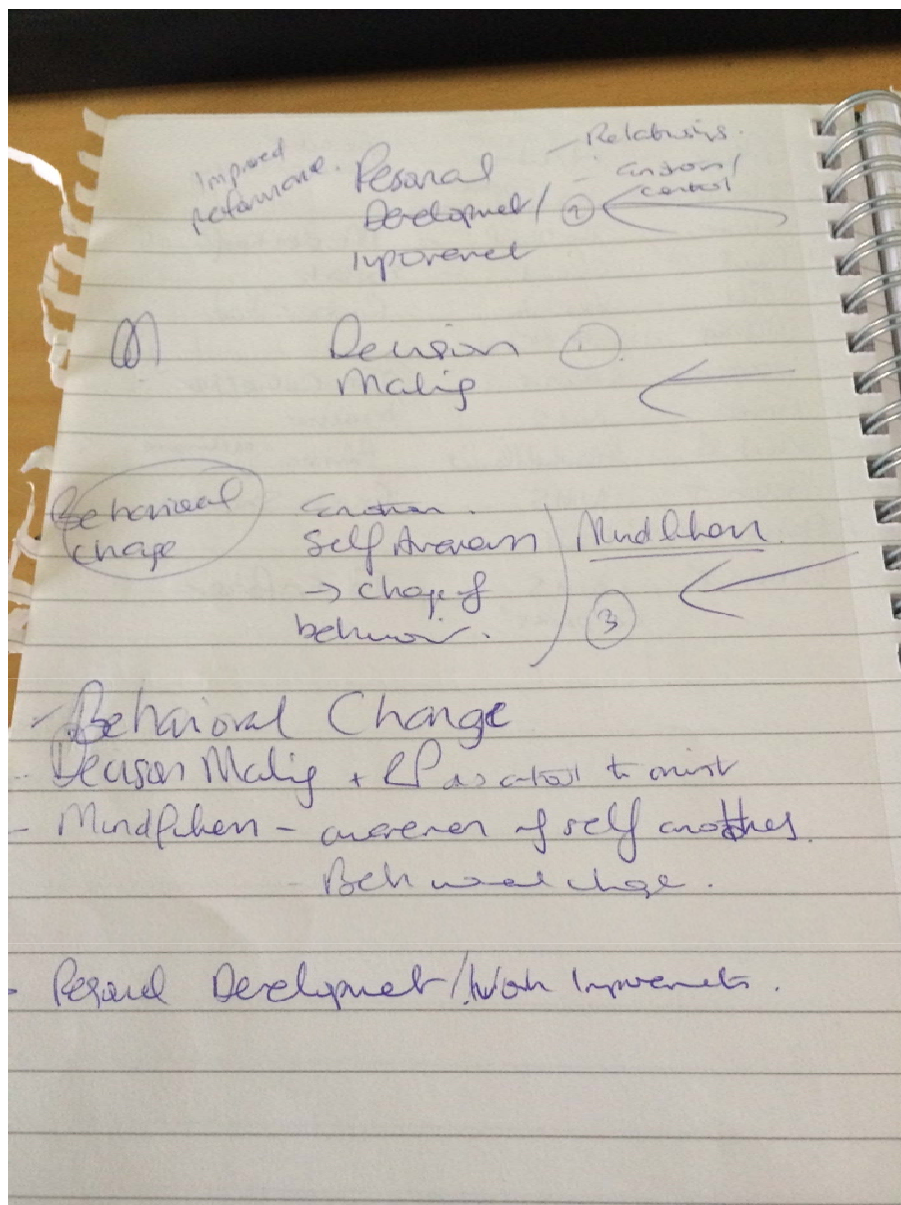 Improved
performance.
Personal
Development/
Improvement
- Relationships.
- Emotion/
control
2
Decision
Making
1
Behavioural
change
Emotion.
Self Awareness
→ change of
behaviour.
Mindfulness
3
- Behavioral Change
- Decision Making + RP as a tool to
- Mindfulness - awareness of self and others.
- Behavioural change.
- Personal Development/Work Improvements.